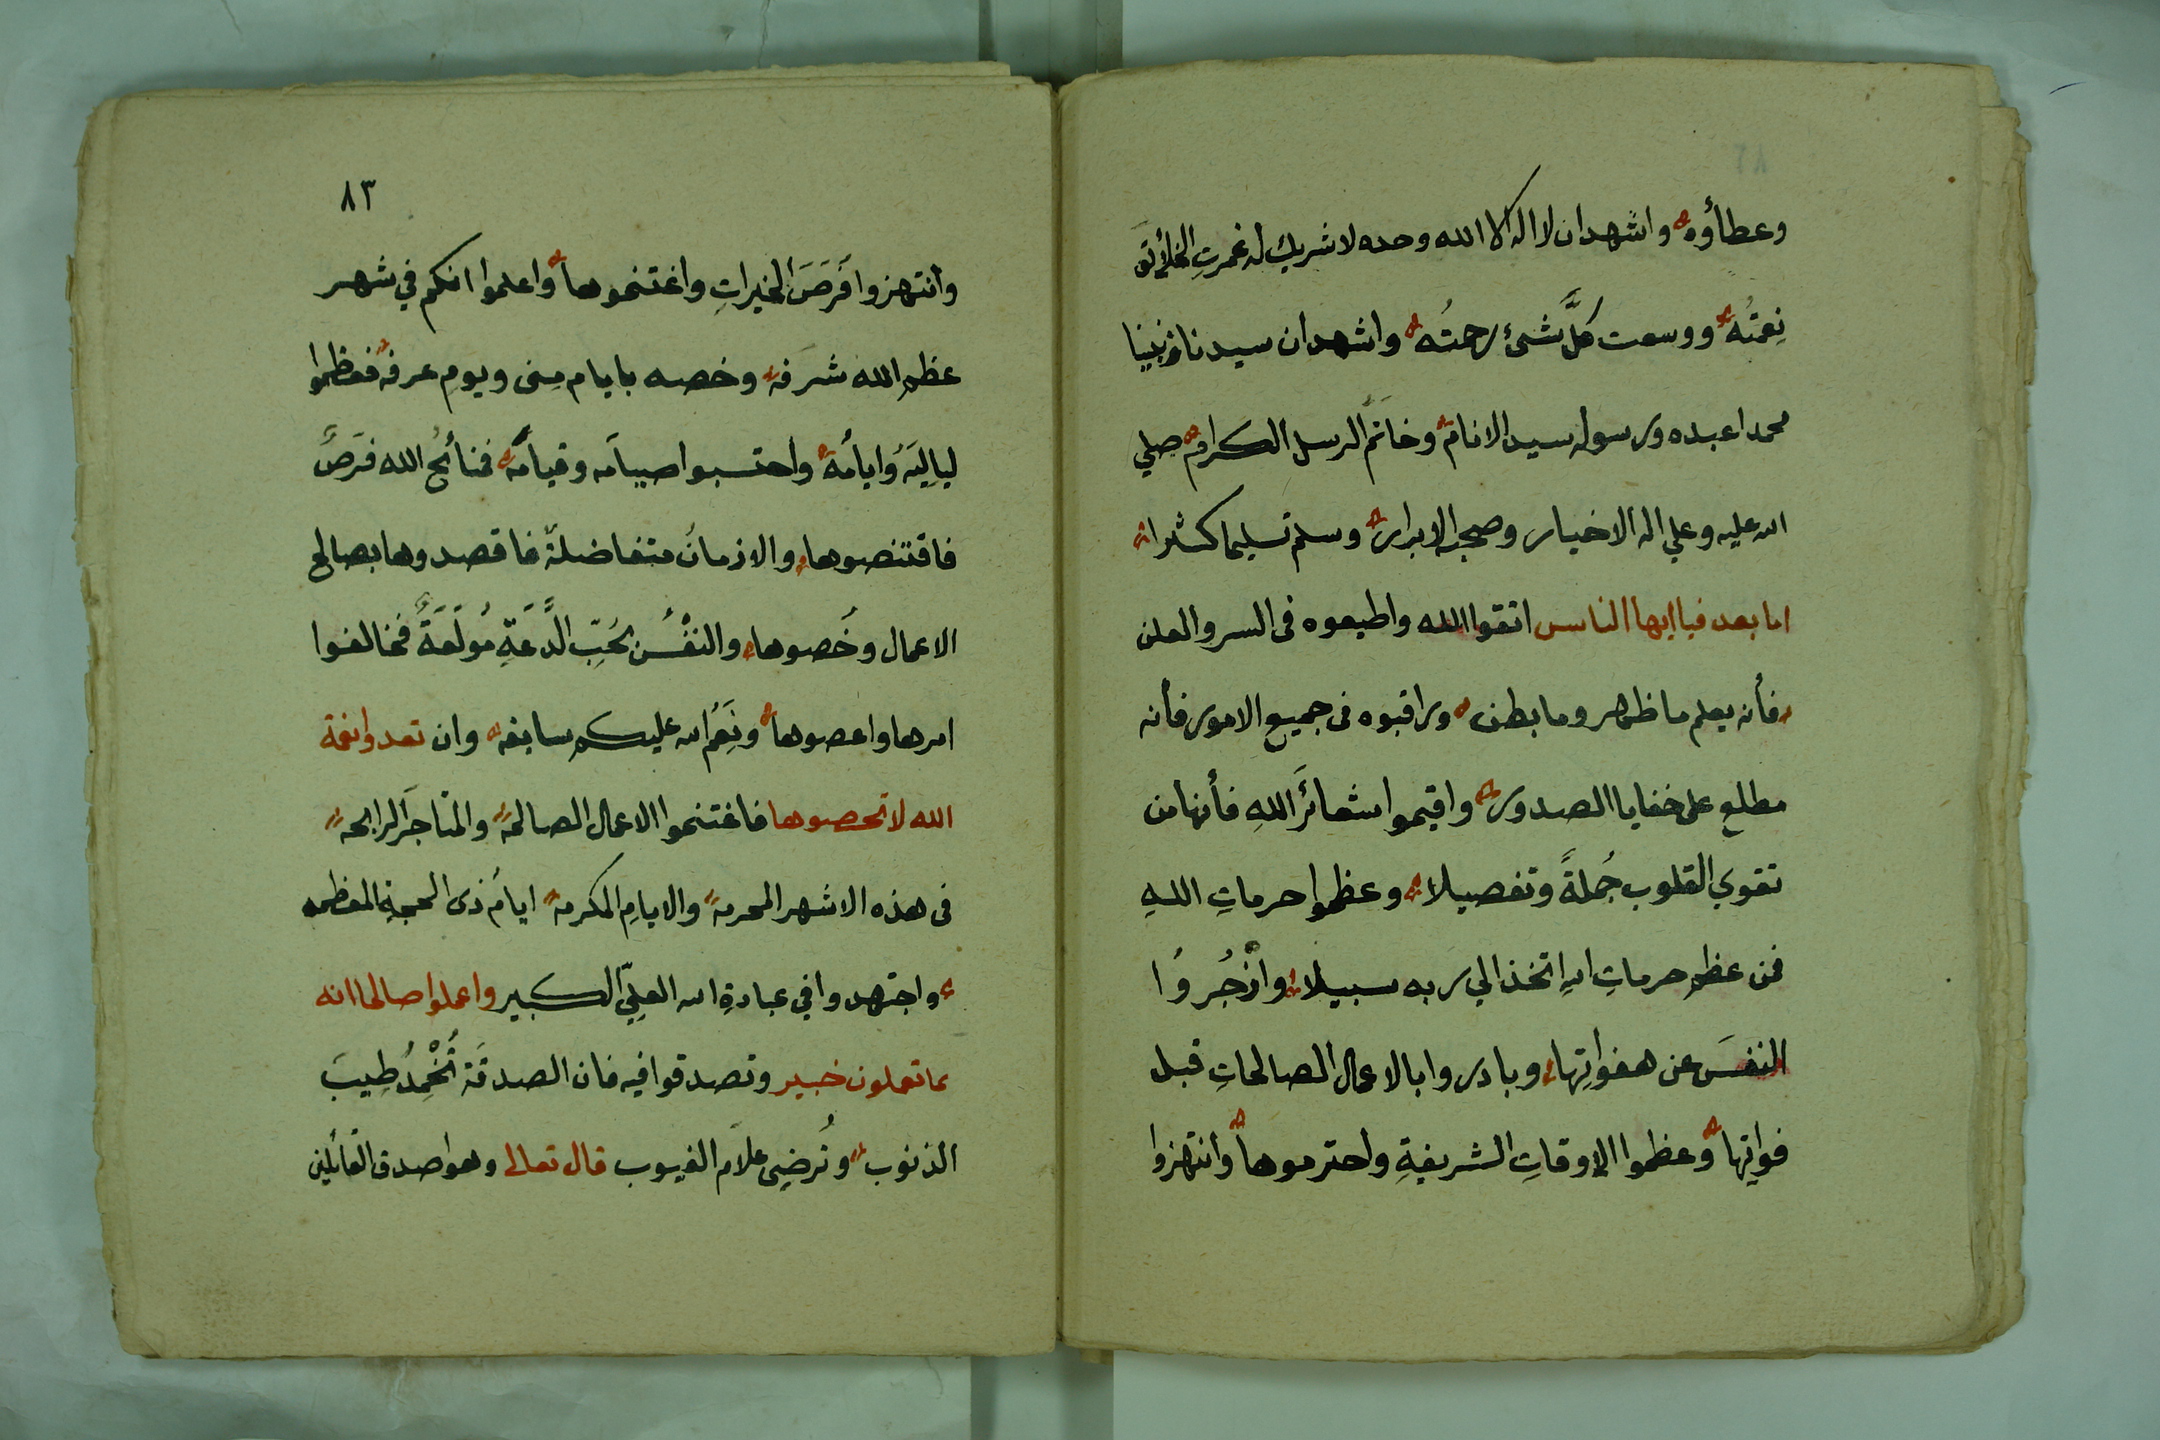 وعطاؤه واشهد ان لا اله الا الله وحده لا شريك له غمرتِ الخلائقَ
نِعمتُه ووسعت كلَّ شئ رحمتُه واشهد ان سيدنا ونبينا
محمدا عبده ورسوله سيد الانام وخاتم الرسل الكرام صلي
الله عليه وعلي اله الاخيار وصحبه الابرار وسلم تسليما كثيرا
اما بعد فيا ايها الناس اتقوا الله واطيعوه فى السر والعلن
فأنه يعلم ما ظهر وما بطن وراقبوه فى جميع الامور فأنه
مطلع على خفايا الصدور واقيموا شعائرَ اللهِ فأنها من
تقوي القلوب جُملةً وتفصيلا وعظموا حرماتِ اللهِ
فمن عظم حرماتِ اللهِ اتخذ الي ربه سبيلا وازْجُروُا
النفسَ عن هفواتِها وبادروا بالاعمال الصالحاتِ قبل
فواتِها وعظموا الاوقاتِ الشريفةِ واحترموها وانتهزوا
٨٣
وانتهزوا فُرَصَ الخيراتِ واغتنموها واعلموا انكم في شهر
عظم الله شرفه وخصه بايام مِنى ويوم عرفه فعظموا
لياليَه وايامَه واحتسبوا صيامَه وقيامَه فمنائحُ الله فرَصٌ
فاقتنصوها والازمانُ متفاضلةٌ فاقصدوها بصالح
الاعمال وخُصوها والنفْسُ بحُبِّ الدَّعَةِ مُولَعَةٌ فخالفوا
امرها واعصوها ونِعَمُ الله عليكم سابغه وان تعدوا نعمة
الله لا تحصوها فاغتنموا الاعمال الصالحة والمتاجرَ الرابحه
فى هذه الاشهر المحرمة والايامِ المكرمة ايامُ ذى الحجةِ المعظمه
واجتهدوا في عبادةِ الله العليِّ الكبير واعملوا صالحا انه
بما تعملون خبير وتصدقوا فيه فان الصدقَة تُخْمِدُ طِيبَ
الذنوب وتُرضِي علاّم الغيوب قال تعالى وهو اصدق القائلين